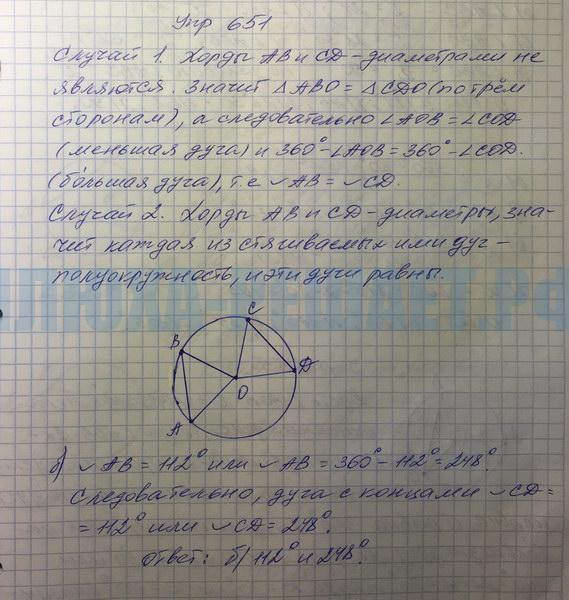 Упр 651
Случай 1. Хорды AB и CD - диаметрами не
являются. Значит △ABO = △CDO (по трём
сторонам), а следовательно ∠AOB = ∠COD
(меньшая дуга) и 360° - ∠AOB = 360° - ∠COD.
(бо́льшая дуга), т.е ◡AB = ◡CD.
Случай 2. Хорды AB и CD - диаметры, зна-
чит каждая из стягиваемых ими дуг -
полуокружность, и эти дуги равны.
C
B
D
O
A
б) ◡AB = 112° или ◡AB = 360° - 112° = 248°.
Следовательно, дуга с концами ◡CD =
= 112° или ◡CD = 248°.
Ответ: б) 112° и 248°.